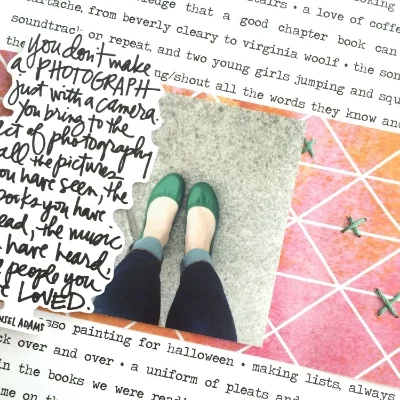 stairs • a love of coffe
eartache, from beverly cleary to virginia woolf • the son
soundtrack or repeat, and two young girls jumping and squ
ng/shout all the words they know and
that a good chapter book can
you don't make
a PHOTOGRAPH
just with a camera.
You bring to the
act of photography
all the pictures
you have seen, the
books you have
read, the music
have heard,
people you
LOVED.
NSEL ADAMS
sso painting for halloween • making lists, always
ck over and over • a uniform of pleats and
in the books we were read
me on th